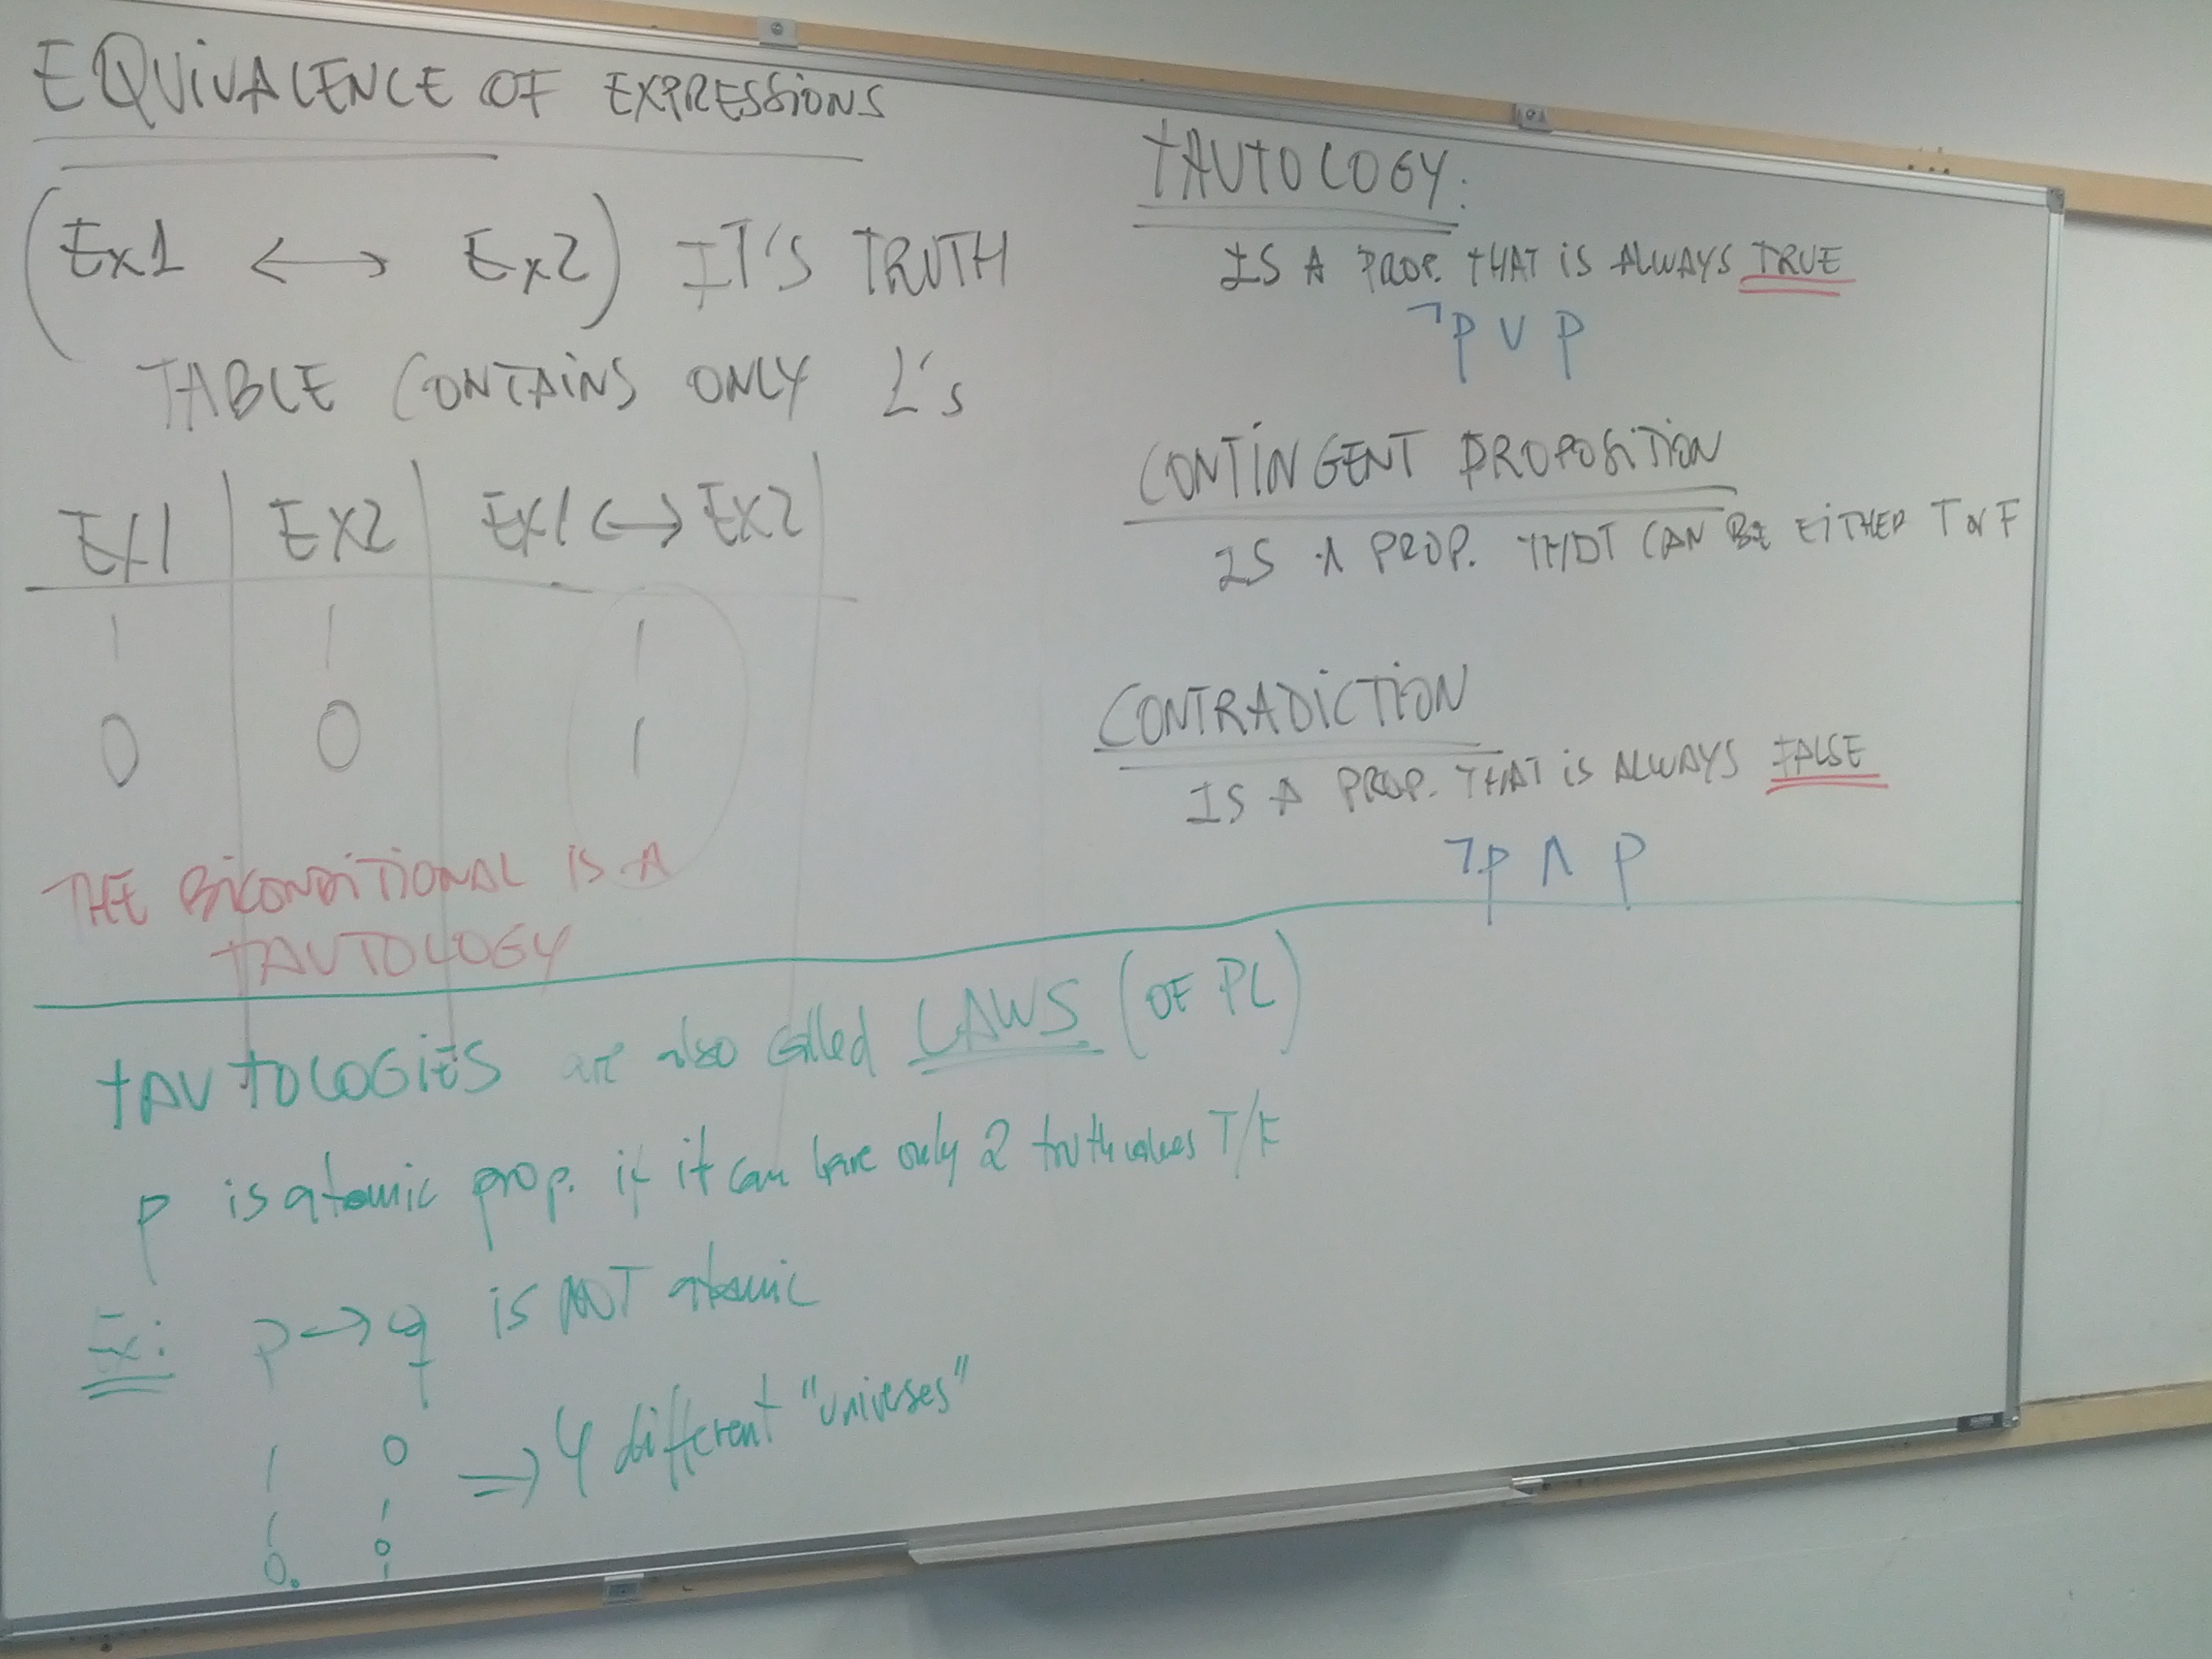 EQUIVALENCE OF EXPRESSIONS
(Ex1 ⟷ Ex2) IT'S TRUTH
TABLE CONTAINS ONLY 1's
EX1 | EX2 | EX1 ⟷ EX2
1 | 1 | 1
0 | 0 | 1
THE BICONDITIONAL IS A
TAUTOLOGY
TAUTOLOGY:
IS A PROP. THAT IS ALWAYS TRUE
¬p ∨ p
CONTINGENT PROPOSITION
IS A PROP. THAT CAN BE EITHER T or F
CONTRADICTION
IS A PROP. THAT IS ALWAYS FALSE
¬p ∧ p
TAUTOLOGIES are also called LAWS (OF PL)
p is atomic prop. if it can have only 2 truth values T/F
Ex: p → q is NOT atomic
1 0 ⇒ 4 different "universes"
1 1
0 0